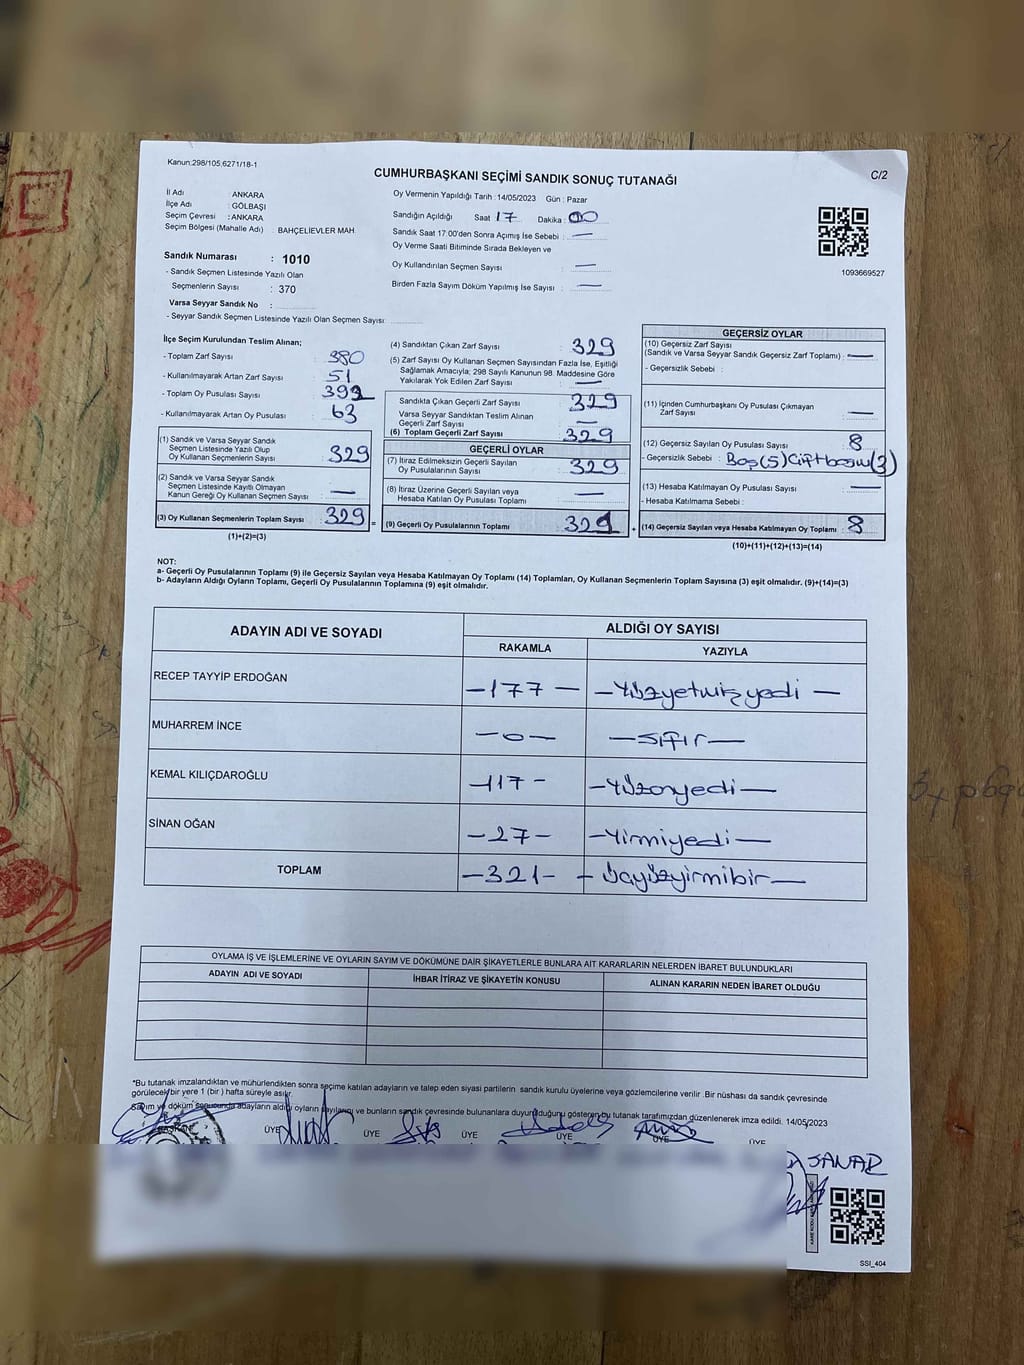 Kanun:298/105,6271/18-1
CUMHURBAŞKANI SEÇİMİ SANDIK SONUÇ TUTANAĞI
C/2
İl Adı : ANKARA
İlçe Adı : GÖLBAŞI
Seçim Çevresi : ANKARA
Seçim Bölgesi (Mahalle Adı) : BAHÇELİEVLER MAH.
Oy Vermenin Yapıldığı Tarih : 14/05/2023 Gün : Pazar
Sandığın Açıldığı Saat 17 Dakika : 00
Sandık Saat 17:00'den Sonra Açımış İse Sebebi : —
Oy Verme Saati Bitiminde Sırada Bekleyen ve
Oy Kullandırılan Seçmen Sayısı : —
Birden Fazla Sayım Döküm Yapılmış İse Sayısı : —
1093669527
Sandık Numarası : 1010
- Sandık Seçmen Listesinde Yazılı Olan
Seçmenlerin Sayısı : 370
Varsa Seyyar Sandık No :
- Seyyar Sandık Seçmen Listesinde Yazılı Olan Seçmen Sayısı:
İlçe Seçim Kurulundan Teslim Alınan;
- Toplam Zarf Sayısı : 380
- Kullanılmayarak Artan Zarf Sayısı : 51
- Toplam Oy Pusulası Sayısı : 392
- Kullanılmayarak Artan Oy Pusulası : 63
(1) Sandık ve Varsa Seyyar Sandık
Seçmen Listesinde Yazılı Olup
Oy Kullanan Seçmenlerin Sayısı : 329
(2) Sandık ve Varsa Seyyar Sandık
Seçmen Listesinde Kayıtlı Olmayan
Kanun Gereği Oy Kullanan Seçmen Sayısı : —
(3) Oy Kullanan Seçmenlerin Toplam Sayısı : 329
(1)+(2)=(3)
(4) Sandıktan Çıkan Zarf Sayısı : 329
(5) Zarf Sayısı Oy Kullanan Seçmen Sayısından Fazla İse, Eşitliği
Sağlamak Amacıyla; 298 Sayılı Kanunun 98. Maddesine Göre
Yakılarak Yok Edilen Zarf Sayısı : —
Sandıkta Çıkan Geçerli Zarf Sayısı : 329
Varsa Seyyar Sandıktan Teslim Alınan
Geçerli Zarf Sayısı : —
(6) Toplam Geçerli Zarf Sayısı : 329
GEÇERLİ OYLAR
(7) İtiraz Edilmeksizin Geçerli Sayılan
Oy Pusulalarının Sayısı : 329
(8) İtiraz Üzerine Geçerli Sayılan veya
Hesaba Katılan Oy Pusulası Toplamı : —
(9) Geçerli Oy Pusulalarının Toplamı : 321
GEÇERSİZ OYLAR
(10) Geçersiz Zarf Sayısı
(Sandık ve Varsa Seyyar Sandık Geçersiz Zarf Toplamı) : —
- Geçersizlik Sebebi :
(11) İçinden Cumhurbaşkanı Oy Pusulası Çıkmayan
Zarf Sayısı : —
(12) Geçersiz Sayılan Oy Pusulası Sayısı : 8
- Geçersizlik Sebebi : Boş(5)Çift basım(3)
(13) Hesaba Katılmayan Oy Pusulası Sayısı : —
- Hesaba Katılmama Sebebi :
(14) Geçersiz Sayılan veya Hesaba Katılmayan Oy Toplamı : 8
(10)+(11)+(12)+(13)=(14)
NOT:
a- Geçerli Oy Pusulalarının Toplamı (9) ile Geçersiz Sayılan veya Hesaba Katılmayan Oy Toplamı (14) Toplamları, Oy Kullanan Seçmenlerin Toplam Sayısına (3) eşit olmalıdır. (9)+(14)=(3)
b- Adayların Aldığı Oyların Toplamı, Geçerli Oy Pusulalarının Toplamına (9) eşit olmalıdır.
ADAYIN ADI VE SOYADI ALDIĞI OY SAYISI
RAKAMLA YAZIYLA
RECEP TAYYİP ERDOĞAN —177— —Yüzyetmişyedi—
MUHARREM İNCE —0— —Sıfır—
KEMAL KILIÇDAROĞLU —117— —Yüzonyedi—
SİNAN OĞAN —27— —Yirmiyedi—
TOPLAM —321— —üçyüzyirmibir—
OYLAMA İŞ VE İŞLEMLERİNE VE OYLARIN SAYIM VE DÖKÜMÜNE DAİR ŞİKAYETLERLE BUNLARA AİT KARARLARIN NELERDEN İBARET BULUNDUKLARI
ADAYIN ADI VE SOYADI İHBAR İTİRAZ VE ŞİKAYETİN KONUSU ALINAN KARARIN NEDEN İBARET OLDUĞU
*Bu tutanak imzalandıktan ve mühürlendikten sonra seçime katılan adayların ve talep eden siyasi partilerin sandık kurulu üyelerine veya gözlemcilerine verilir .Bir nüshası da sandık çevresinde
görülecek bir yere 1 (bir ) hafta süreyle asılır.
Sayım ve döküm sonucunda adayların aldığı oyların sayılarını ve bunların sandık çevresinde bulunanlara duyurulduğunu gösteren bu tutanak tarafımızdan düzenlenerek imza edildi. 14/05/2023
BAŞKAN ÜYE ÜYE ÜYE ÜYE ÜYE ÜYE
SANAR
SSI_404